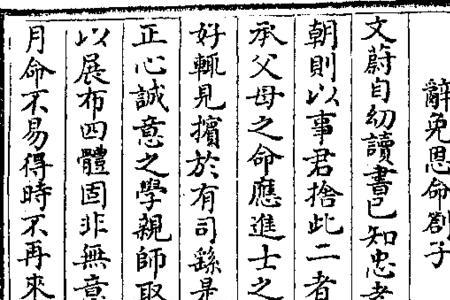 辭免恩命劄子
文蔚自幼讀書已知忠孝
朝則以事君捨此二者
承父母之命應進士之
好輒見擯於有司繇是
正心誠意之學親師取
以展布四體固非無意
月命不易得時不再來